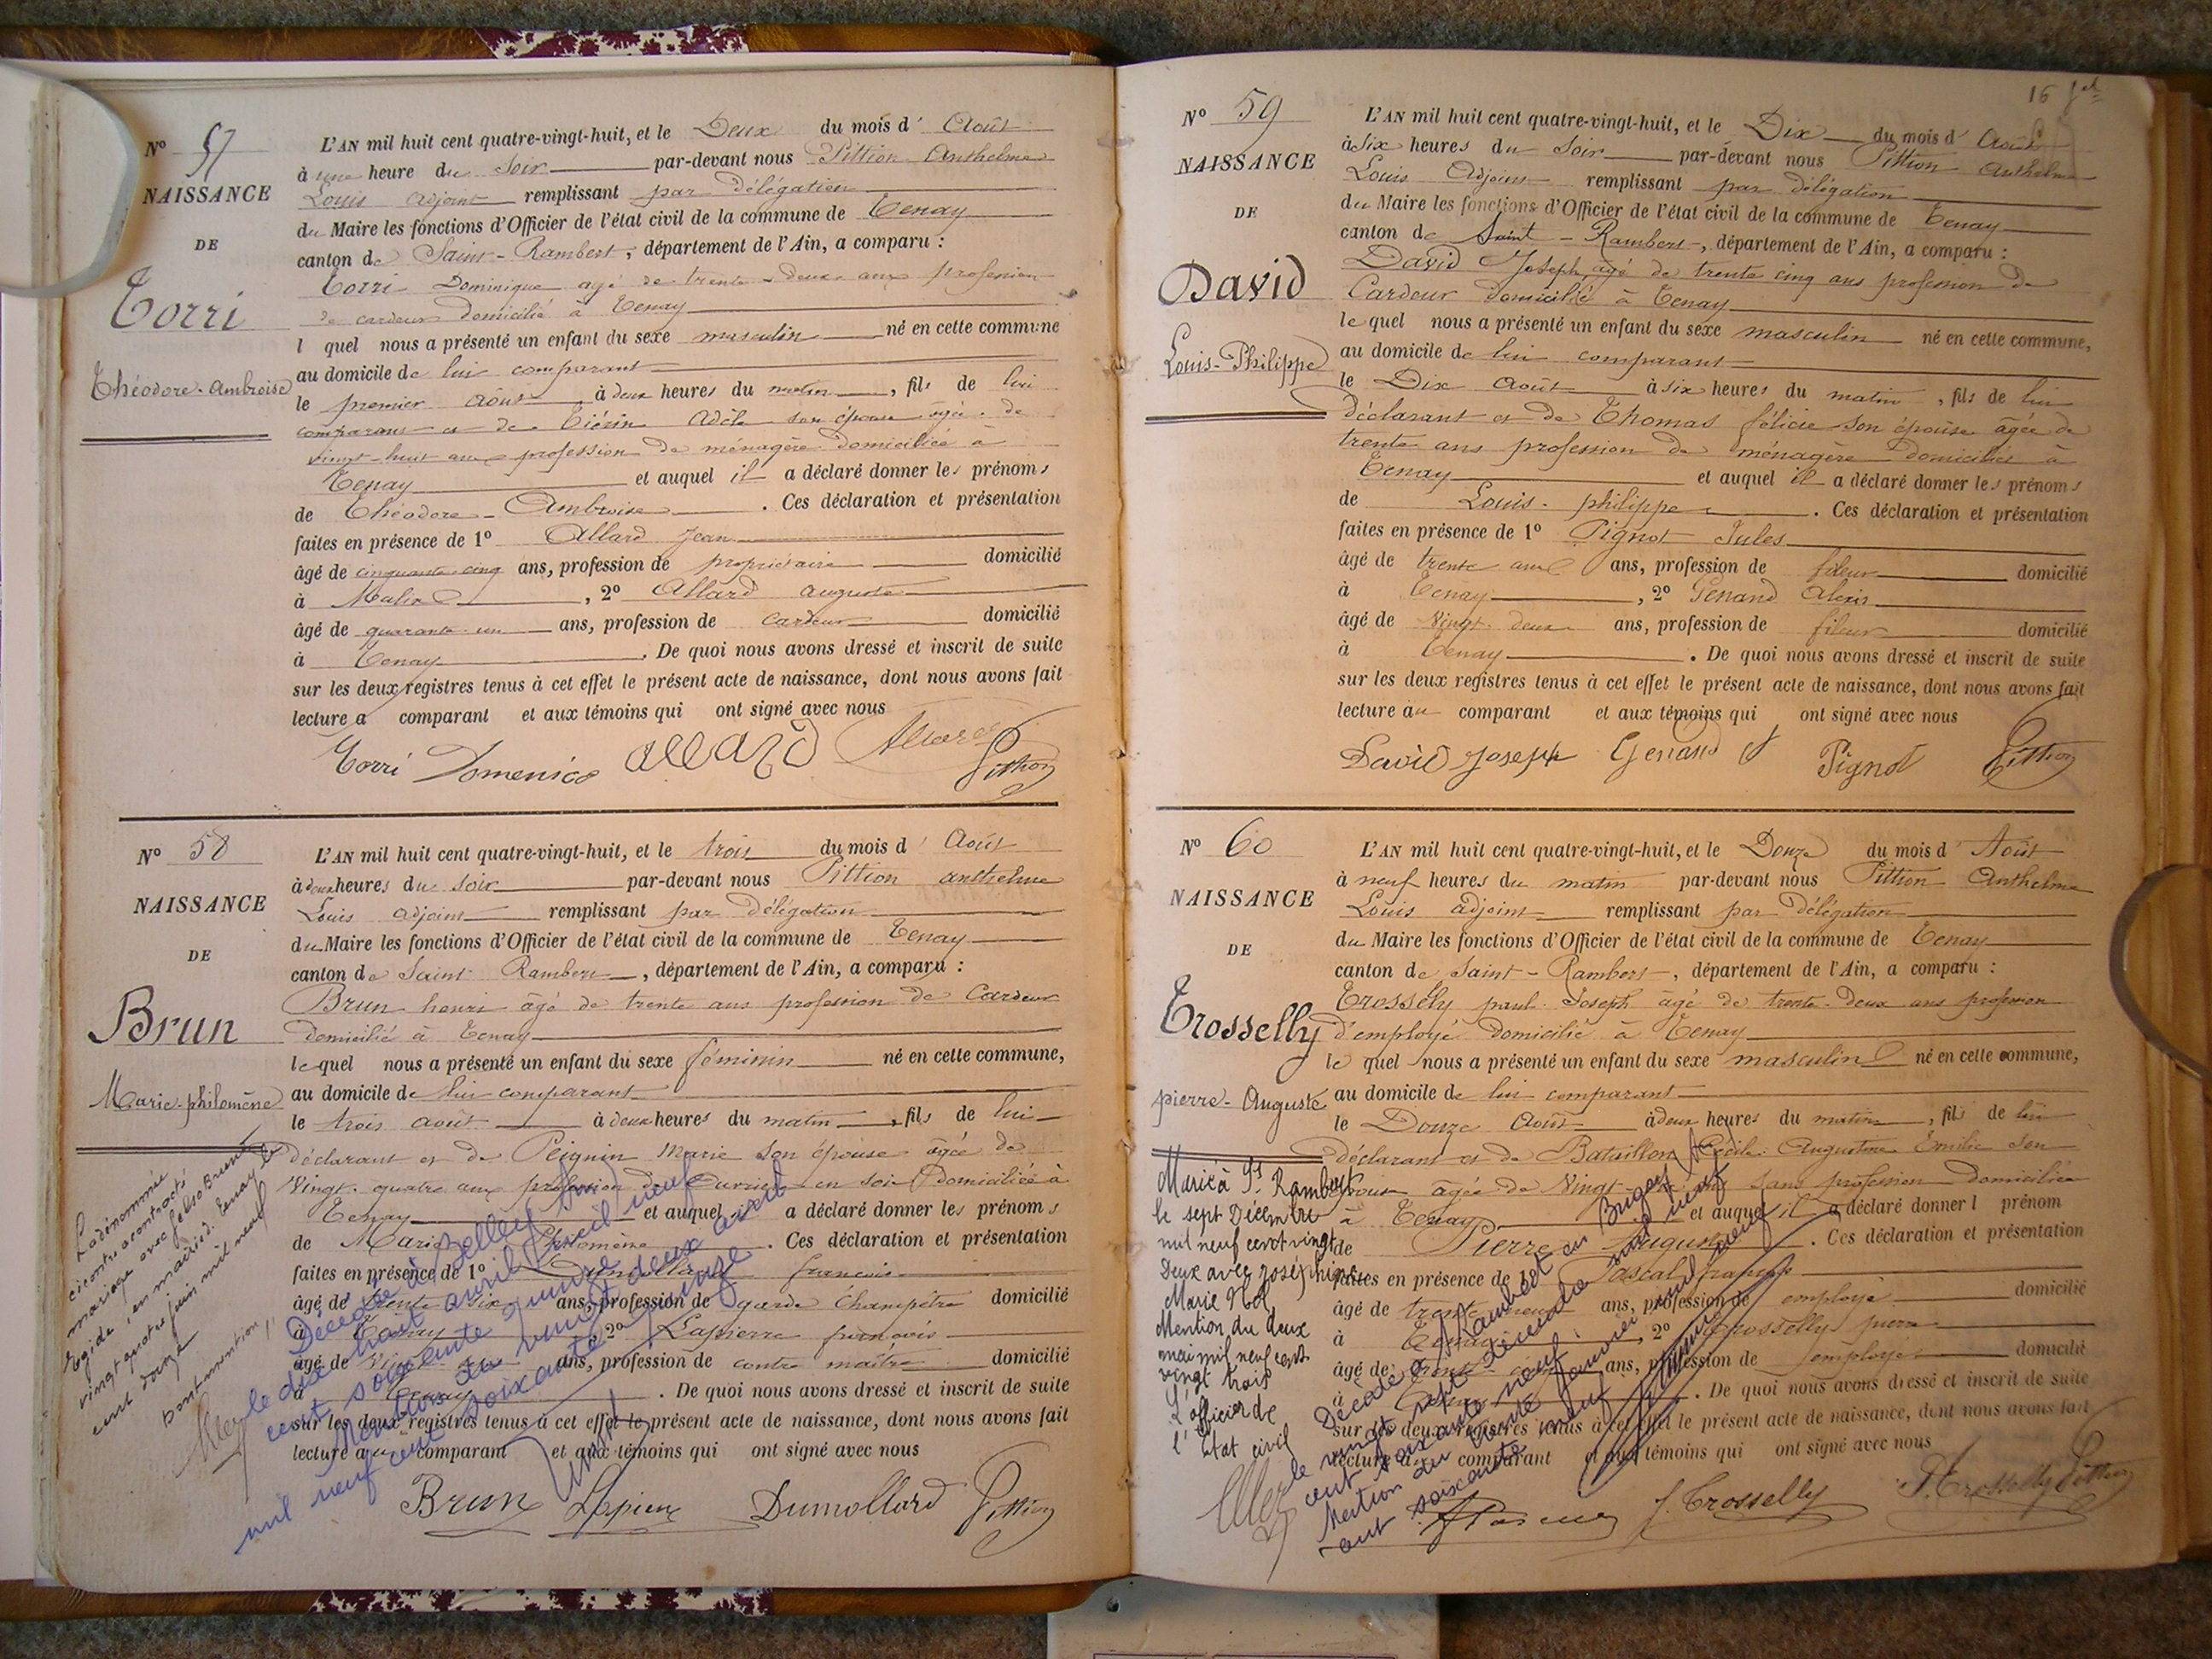 N° 57
NAISSANCE
DE
Torri
Théodore-Ambroise
L'AN mil huit cent quatre-vingt-huit, et le Deux du mois d' Août
à une heure du soir par-devant nous Pittion Anthelme
Louis adjoint remplissant par délégation
du Maire les fonctions d'Officier de l'état civil de la commune de Tenay
canton de Saint-Rambert, département de l'Ain, a comparu :
Torri Dominique agé de trente-deux ans profession
de cardeur domicilié à Tenay
l quel nous a présenté un enfant du sexe masculin né en cette commune
au domicile de lui comparant
le premier août à deux heures du matin, fils de lui
comparant et de Adèle son épouse agée de
vingt-huit ans profession de ménagère domiciliée à
Tenay et auquel il a déclaré donner les prénoms
de Théodore-Ambroise. Ces déclaration et présentation
faites en présence de 1° Allard Jean
âgé de cinquante cinq ans, profession de propriétaire domicilié
à, 2° Allard auguste
âgé de quarante-un ans, profession de cardeur domicilié
à Tenay. De quoi nous avons dressé et inscrit de suite
sur les deux registres tenus à cet effet le présent acte de naissance, dont nous avons fait
lecture a comparant et aux témoins qui ont signé avec nous
Torri Domenico ALLARD Allard Pittion
N° 58
NAISSANCE
DE
Brun
Marie-philomène
La dénommée
ci contre a contracté
mariage avec Brun
Egide, en mairie d. Tenay le
vingt quatre juin mil neuf
cent douze
L'AN mil huit cent quatre-vingt-huit, et le trois du mois d' Août
à deux heures du soir par-devant nous Pittion anthelme
Louis adjoint remplissant par délégation
du Maire les fonctions d'Officier de l'état civil de la commune de Tenay
canton de Saint Rambert, département de l'Ain, a comparu :
Brun henri âgé de trente ans profession de Cardeur
domicilié à Tenay
le quel nous a présenté un enfant du sexe féminin né en cette commune,
au domicile de lui comparant
le trois août à deux heures du matin, fils de lui
déclarant et de Peignin Marie son épouse âgée de
vingt-quatre ans profession de ouvrière en soie domiciliée à
Tenay et auquel il a déclaré donner les prénoms
de Marie Philomène. Ces déclaration et présentation
faites en présence de 1° Dumollard françois
âgé de trente six ans, profession de garde Champêtre domicilié
à Tenay, 2° Lapierre françois
âgé de vingt ans, profession de contre maître domicilié
à Tenay. De quoi nous avons dressé et inscrit de suite
sur les deux registres tenus à cet effet le présent acte de naissance, dont nous avons fait
lecture au comparant et aux témoins qui ont signé avec nous
Décédée à Belley (Ain)
le dix huit avril mil neuf
cent soixante quinze
Mention du vingt deux avril
mil neuf cent soixante quinze
Brun Lapierre Dumollard Pittion
16
N° 59
NAISSANCE
DE
David
Louis-Philippe
L'AN mil huit cent quatre-vingt-huit, et le Dix du mois d' Août
à six heures du Soir par-devant nous Pittion Anthelme
Louis Adjoint remplissant par délégation
du Maire les fonctions d'Officier de l'état civil de la commune de Tenay
canton de Saint-Rambert, département de l'Ain, a comparu :
David Joseph âgé de trente cinq ans profession de
Cardeur domicilié à Tenay
le quel nous a présenté un enfant du sexe masculin né en cette commune,
au domicile de lui comparant
le Dix Août à six heures du matin, fils de lui
déclarant et de Thomas félicie son épouse âgée de
trente ans profession de ménagère domiciliée à
Tenay et auquel il a déclaré donner les prénoms
de Louis-philippe. Ces déclaration et présentation
faites en présence de 1° Pignot Jules
âgé de trente ans, profession de fileur domicilié
à Tenay, 2° Genand Alexis
âgé de Vingt-deux ans, profession de fileur domicilié
à Tenay. De quoi nous avons dressé et inscrit de suite
sur les deux registres tenus à cet effet le présent acte de naissance, dont nous avons fait
lecture au comparant et aux témoins qui ont signé avec nous
David Joseph Genand Pignot Pittion
N° 60
NAISSANCE
DE
Trosselly
pierre-Auguste
Marié à St Rambert
le sept Décembre
mil neuf cent vingt
Deux avec Joséphine
Marie
Mention du deux
mai mil neuf cent
vingt trois
L'officier de
l'Etat civil
L'AN mil huit cent quatre-vingt-huit, et le Douze du mois d' Août
à neuf heures du matin par-devant nous Pittion Anthelme
Louis adjoint remplissant par délégation
du Maire les fonctions d'Officier de l'état civil de la commune de Tenay
canton de Saint-Rambert, département de l'Ain, a comparu :
Trosselly paul Joseph âgé de trente-deux ans profession
d'employé domicilié à Tenay
le quel nous a présenté un enfant du sexe masculin né en cette commune,
au domicile de lui comparant
le Douze Août à deux heures du matin, fils de lui
déclarant et de Bataillon Cécile Augustine Emilie son
épouse âgée de vingt ans sans profession domiciliée
à Tenay et auquel il a déclaré donner l prénom
de Pierre Auguste. Ces déclaration et présentation
faites en présence de 1° Pascal françois
âgé de trente ans, profession de employé domicilié
à Tenay, 2° Trosselly pierre
âgé de trente ans, profession de employé domicilié
à Tenay. De quoi nous avons dressé et inscrit de suite
sur les deux registres tenus à cet effet le présent acte de naissance, dont nous avons fait
lecture au comparant et aux témoins qui ont signé avec nous
Décédé à St Rambert en Bugey
le vingt sept décembre mil neuf
cent soixante neuf
Mention du trente janvier mil neuf
cent soixante
J. Trosselly P. Trosselly Pittion